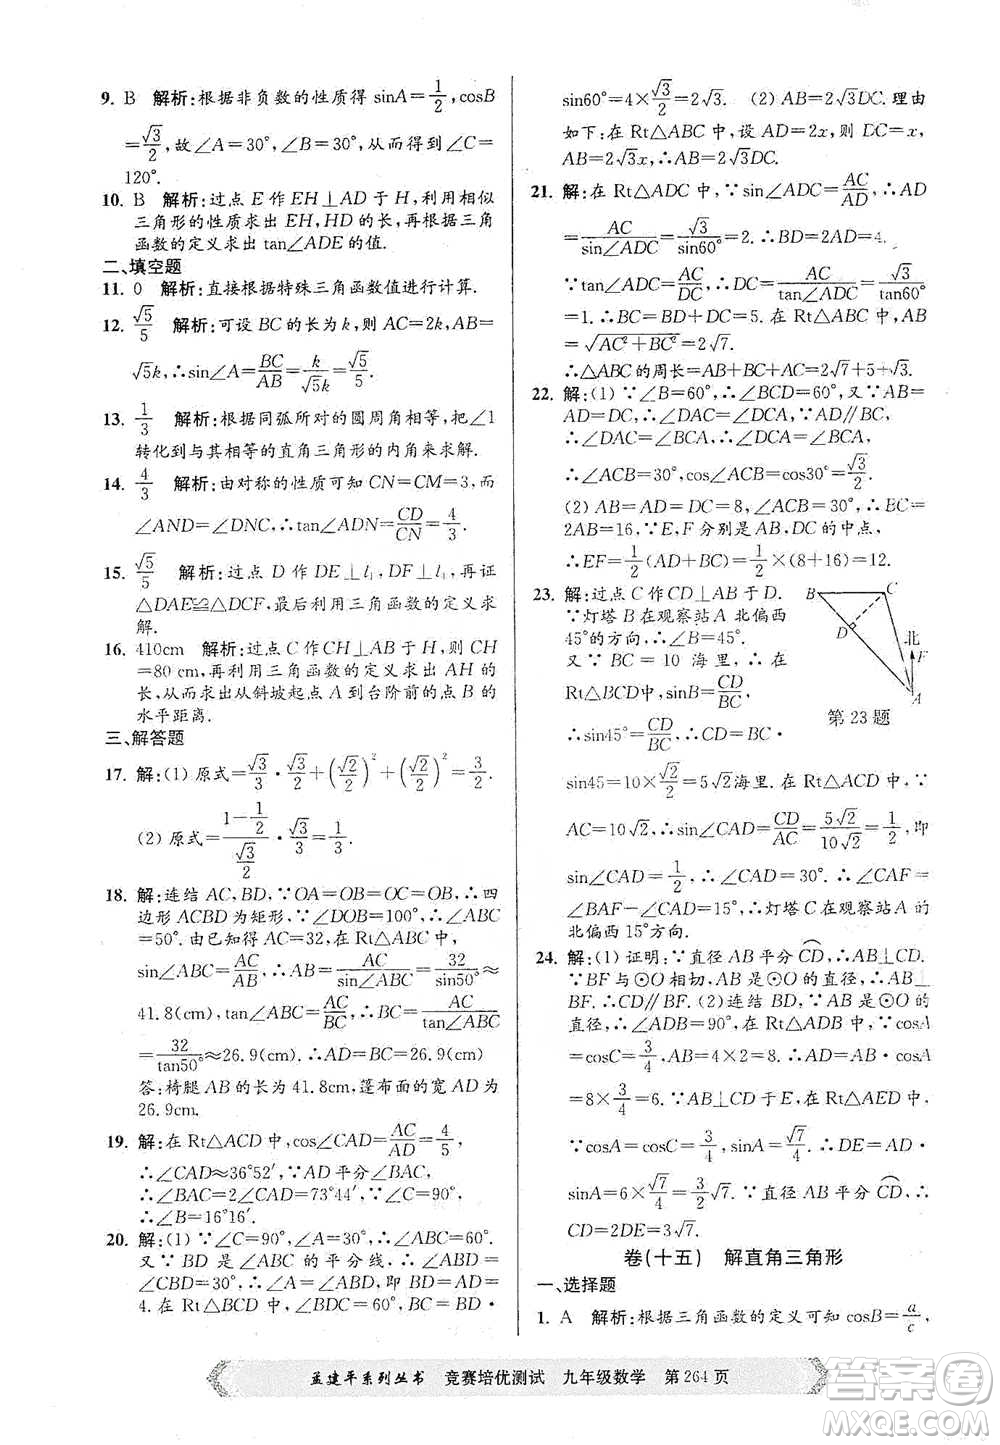 9. B 解析:根据非负数的性质得 sinA=1/2,cosB
=√3/2,故∠A=30°,∠B=30°,∴∠C=
120°.
10. B 解析:过点 E 作 EH⊥AD 于 H,利用相似
三角形的性质求出 EH,HD 的长,再根据三角
函数的定义求出 tan∠ADE 的值.
二、填空题
11. 0 解析:直接根据特殊三角函数值进行计算.
12. √5/5 解析:可设 BC 的长为 k,则 AC=2k,AB=
√5k,∴sin∠A=BC/AB=k/√5k=√5/5.
13. 1/3 解析:根据同弧所对的圆周角相等,把∠1
转化到与其相等的直角三角形的内角来求解.
14. 4/3 解析:由对称的性质可知 CN=CM=3,而
∠AND=∠DNC,∴tan∠ADN=CD/CN=4/3.
15. √5/5 解析:过点 D 作 DE⊥l₁,DF⊥l₁,再证
△DAE≌△DCF,最后利用三角函数定义求
解.
16. 410cm 解析:过点 C 作 CH⊥AB 于 H,则 CH
=80 cm,再利用三角函数的定义求出 AH 的
长,从而求出从斜坡起点 A 到台阶前的点 B 的
水平距离.
三、解答题
17. 解:(1) 原式=√3/3·√3/2+(√2/2)²+(√2/2)²=3/2.
(2) 原式=(1-1/2)/(√3/2)·√3/3=1/3.
18. 解:连结 AC,BD,∵OA=OB=OC=OB,∴四
边形 ACBD 为矩形,∵∠DOB=100°,∴∠ABC
=50°.由已知得 AC=32,在 Rt△ABC 中,
sin∠ABC=AC/AB,∴AB=AC/sin∠ABC=32/sin50°≈
41.8(cm),tan∠ABC=AC/BC,∴BC=AC/tan∠ABC
=32/tan50°≈26.9(cm)∴AD=BC=26.9(cm).
答:椅腿 AB 的长为 41.8cm,篷布面的宽 AD 为
26.9cm.
19. 解:在 Rt△ACD 中,cos∠CAD=AC/AD=4/5,
∴∠CAD≈36°52′,∵AD 平分∠BAC,
∴∠BAC=2∠CAD=73°44′,∵∠C=90°,
∴∠B=16°16′.
20. 解:(1) ∵∠C=90°,∠A=30°,∴∠ABC=60°.
又∵BD 是∠ABC 的平分线,∴∠ABD=
∠CBD=30°.∴∠A=∠ABD,即 BD=AD=
4.在 Rt△BCD 中,∠BDC=60°,∴BC=BD·
sin60°=4×√3/2=2√3. (2) AB=2√3DC.理由
如下:在 Rt△ABC 中,设 AD=2x,则 DC=x,
AB=2√3x,∴AB=2√3DC.
21. 解:在 Rt△ADC 中,∵sin∠ADC=AC/AD,∴AD
=AC/sin∠ADC=√3/sin60°=2.∴BD=2AD=4.
∵tan∠ADC=AC/DC,∴DC=AC/tan∠ADC=√3/tan60°
=1.∴BC=BD+DC=5.在 Rt△ABC 中,AB=
√AC²+BC²=2√7.
∴△ABC 的周长=AB+BC+AC=2√7+5+√3.
22. 解:(1) ∵∠B=60°,∴∠BCD=60°,又∵AB=
AD=DC,∴∠DAC=∠DCA,∵AD∥BC,
∴∠DAC=∠BCA,∴∠DCA=∠BCA,
∴∠ACB=30°,cos∠ACB=cos30°=√3/2.
(2) AB=AD=DC=8,∠ACB=30°,∴BC=
2AB=16,∵E,F 分别是 AB,DC 的中点,
∴EF=1/2(AD+BC)=1/2×(8+16)=12.
23. 解:过点 C 作 CD⊥AB 于 D.
∵灯塔 B 在观察站 A 北偏西
45°的方向,∴∠B=45°.
又∵BC=10 海里,∴在
Rt△BCD 中,sin∠B=CD/BC,
∴sin45°=CD/BC,∴CD=BC·
B C D 北 F A
第23题
sin45=10×√2/2=5√2海里.在 Rt△ACD 中,∵
AC=10√2,∴sin∠CAD=CD/AC=5√2/10√2=1/2,即
sin∠CAD=1/2,∴∠CAD=30°.∴∠CAF=
∠BAF−∠CAD=15°,∴灯塔 C 在观察站 A 的
北偏西 15°方向.
24. 解:(1) 证明:∵直径 AB 平分 CD,∴AB⊥CD.
∵BF 与⊙O 相切,AB 是⊙O 的直径,∴AB⊥
BF.∴CD∥BF.(2)连结 BD,∵AB 是⊙O 的
直径,∴∠ADB=90°,在 Rt△ADB 中,∵cosA
=cosC=3/4,AB=4×2=8.∴AD=AB·cosA
=8×3/4=6.∵AB⊥CD 于 E,在 Rt△AED 中,
∵cosA=cosC=3/4,sinA=√7/4.∴DE=AD·
sinA=6×√7/4=3√7/2,∵直径 AB 平分 CD,∴
CD=2DE=3√7.
卷(十五) 解直角三角形
一、选择题
1. A 解析:根据三角函数的定义可知 cosB=a/c,
孟建平系列丛书 竞赛培优测试 九年级数学 第264页
作业帮答案
MXQE.COM